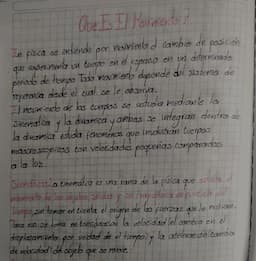 Que Es El Movimiento?
En física se entiende por movimiento el cambio de posición
que experimenta un cuerpo en el espacio en un determinado
periodo de tiempo. Todo movimiento depende del sistema de
referencia desde el cual se le observa.
El movimiento de los cuerpos se estudia mediante la
cinemática y la dinámica y ambas se integran dentro de
la dinámica estudia fenómenos que involucran cuerpos
macroscópicos con velocidades pequeñas comparadas
a la luz.
Cinemática: la cinemática es una rama de la física que estudia el
movimiento de los objetos sólidos y su trayectoria en función del
tiempo, sin tomar en cuenta el origen de las fuerzas que lo motivan.
Para eso se toma en consideración la velocidad (el cambio en el
desplazamiento por unidad de tiempo) y la aceleración (cambio
de velocidad) del objeto que se mueve.